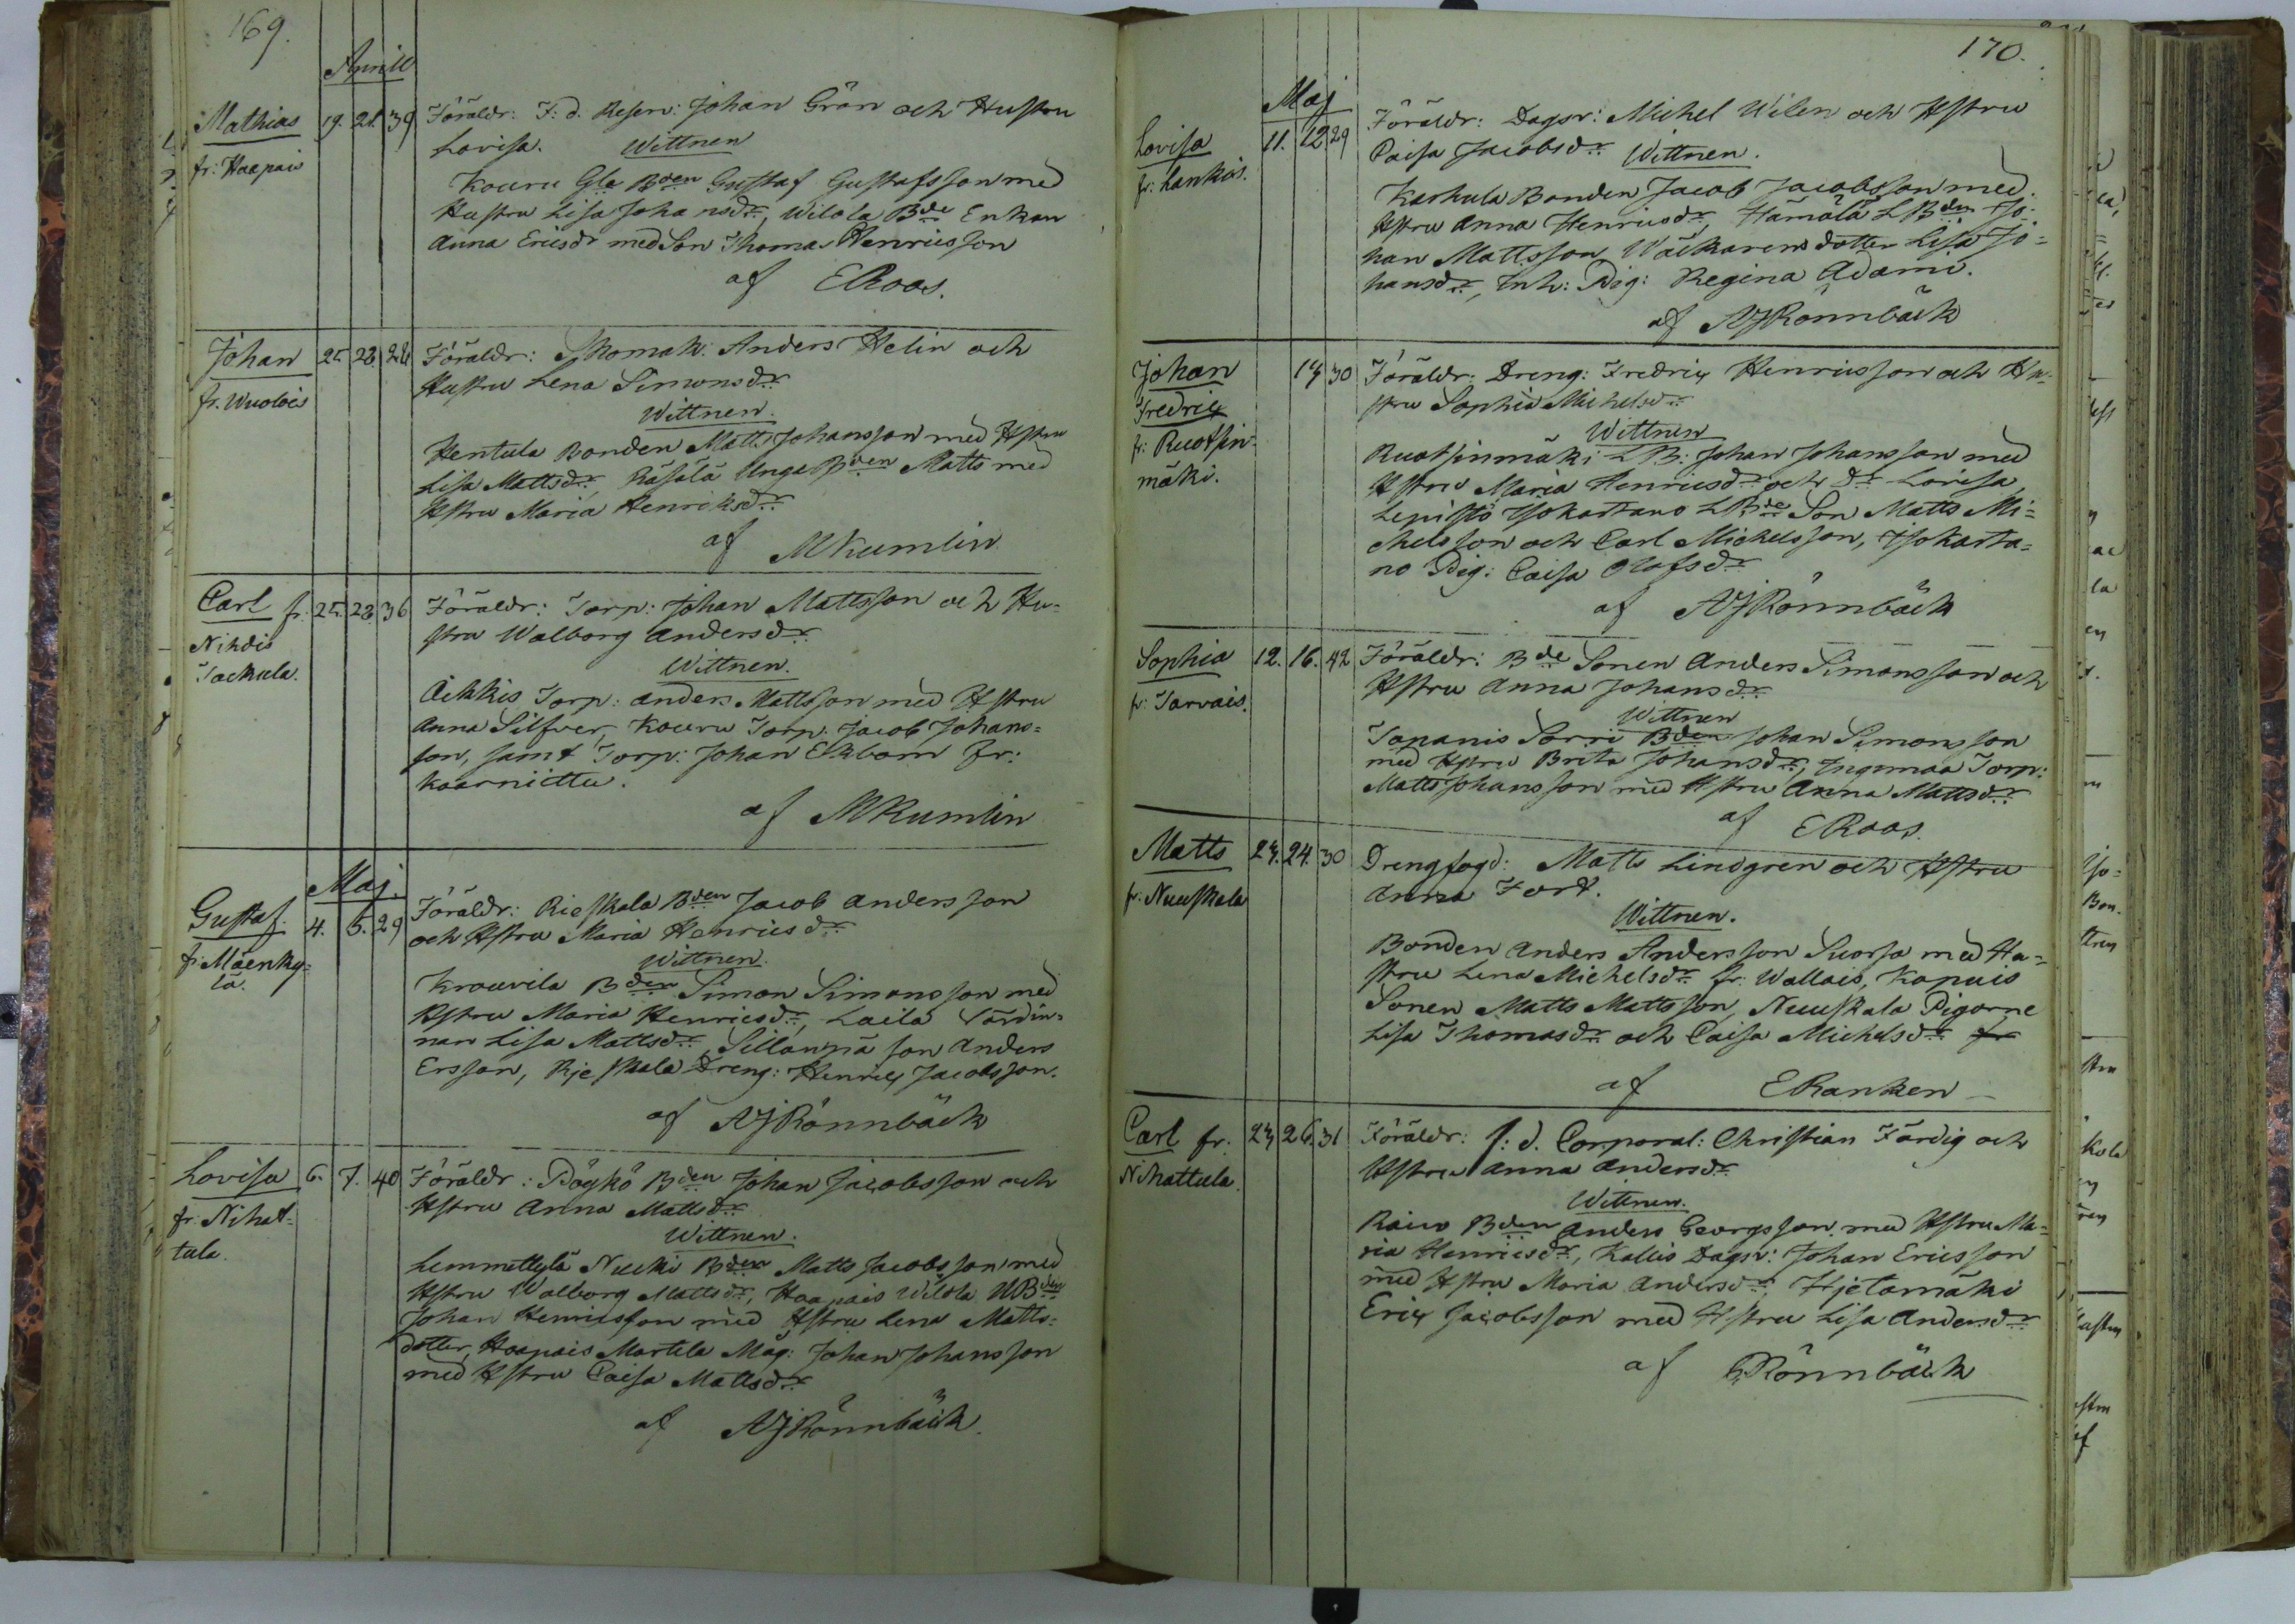 169.
Aprill
Mathias 19. 21. 39 Föräldr: F: d. Reserv: Johan Grön och Hustru
fr: Haapais Lovisa. Wittnen
Kouru Gle Bden Gustaf Gustafsson med
Hustru Lisa Johansdr, Wilola Bde Enkan
Anna Ericsdr med Son Thomas Henricsson
af ERoos.
Johan 25. 28. 26 Föräldr: Skomak: Anders Helin och
fr. Wuolois Hustru Lena Simonsdr
Wittnen.
Hentula Bonden Matts Johansson med Hstru
Lisa Mattsdr, Räsälä Unga Bden Matts med
Hstru Maria Henriksdr
af MKumlin
Carl fr. 25. 28. 36 Föräldr: Torp: Johan Mattsson och Hu-
Nihdis stru Walborg Andersdr
Jackula. Wittnen.
Äikkis Torp: Anders Mattsson med Hstru
Anna Silfver, Kouru Torp: Jacob Johans=
son, samt Torp: Johan Ekbom fr:
Kaarniittu.
af MKumlin
Maj.
Gustaf 4. 5. 29 Föräldr: Rieskala Bden Jacob Andersson
fr: Mäenky= och Hstru Maria Henricsdr
lä. Wittnen.
Krouvila Bden Simon Simonsson med
Hstru Maria Henricsdr, Laila Värdin=
nan Lisa Mattsdr, Sillanpä son Anders
Ersson, Rjeskala Dreng: Henric Jacobsson.
af AJRönnbäck
Lovisa 6. 7. 40 Föräldr: Pöykö Bden Johan Jacobsson och
fr: Nihat= Hstru Anna Mattsdr
tula. Wittnen.
Lemmettylä Nucki Bden Matts Jacobsson med
Hstru Walborg Mattsdr, Haapais Wilola UBden
Johan Henricsson med Hstru Lena Matts=
dotter, Haapais Martila Måg: Johan Johansson
med Hstru Caisa Mattsdr
af AJRönnbäck.
170.
Maj
Lovisa 11. 12. 29 Föräldr: Dagsv: Michel Wilen och Hstru
fr: Lankois. Caisa Jacobsdr Wittnen.
Karhula Bonden Jacob Jacobsson med
Hstru Anna Henricsdr, Hämälä LBden Jo-
han Mattsson, Wäckarens dotter Lisa Jo=
hansdr, Inh: Pig: Regina Adami.
af AJRönnbäck
Johan 14 30 Föräldr: Dreng: Fredric Henricsson och Hu-
Fredric stru Sophia Michelsdr
fr: Ruotsin- Wittnen
mäki. Ruotsinmäki LB: Johan Johansson med
Hstru Maria Henricsdr och Dr Lovisa,
Lepistö Isokartano LBde Son Matts Mi=
chelsson och Carl Michelsson, Isokarta=
no Pig: Caisa Olofsdr
af AJRönnbäck
Sophia 12. 16. 42 Föräldr: Bde Sonen Anders Simonsson och
fr: Tarvais. Hstru Anna Johansdr
Wittnen
Tapanis Sorri Bden Johan Simonsson
med Hstru Brita Johansdr, Ingemaa Torp:
Matts Johansson med Hstru Anna Mattsdr
af ERoos.
Matts 24. 24. 30 Drengfogd: Matts Lindgren och Hstru
fr: Nuuskala Anna Fort.
Wittnen.
Bonden Anders Andersson Suorsa med Hu=
stru Lena Michelsdr fr: Wallais, Kapuis
Sonen Matts Mattsson, Nuuskala Pigorne
Lisa Thomasdr och Caisa Michelsdr
af ERanken
Carl fr. 24 26. 31 Föräldr: f: d. Corporal: Christian Färdig och
Nihattula. Hstru Anna Andersdr
Wittnen.
Raivo Bden Anders Georgsson med Hstru Ma=
ria Henricsdr, Kallis Dagsv: Johan Ericsson
med Hstru Maria Andersdr, Hjetamäki
Eric Jacobsson med Hstru Lisa Andersdr
af Rönnbäck